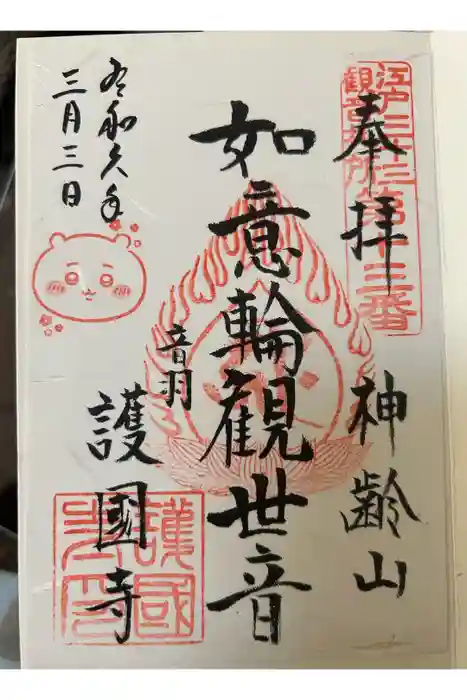 奉拝
江戸三十三
観音札所第十三番
神齢山
如意輪観世音
音羽
護国寺
令和六年
三月三日
護國
寺印